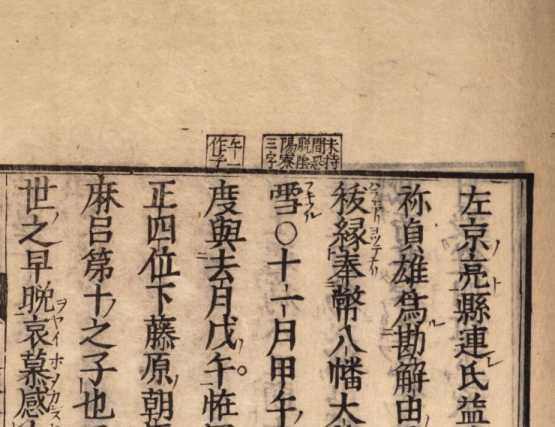 未侍
間恐
脱陰
陽寮
三字
午一
作子
左京亮縣連氏益
祢貞雄爲勘解由
秡縁奉幣八幡大
雪〇十一月甲午
度與去月戊午。恠
正四位下藤原朝
麻呂第十之子也
世之早晩哀慕感